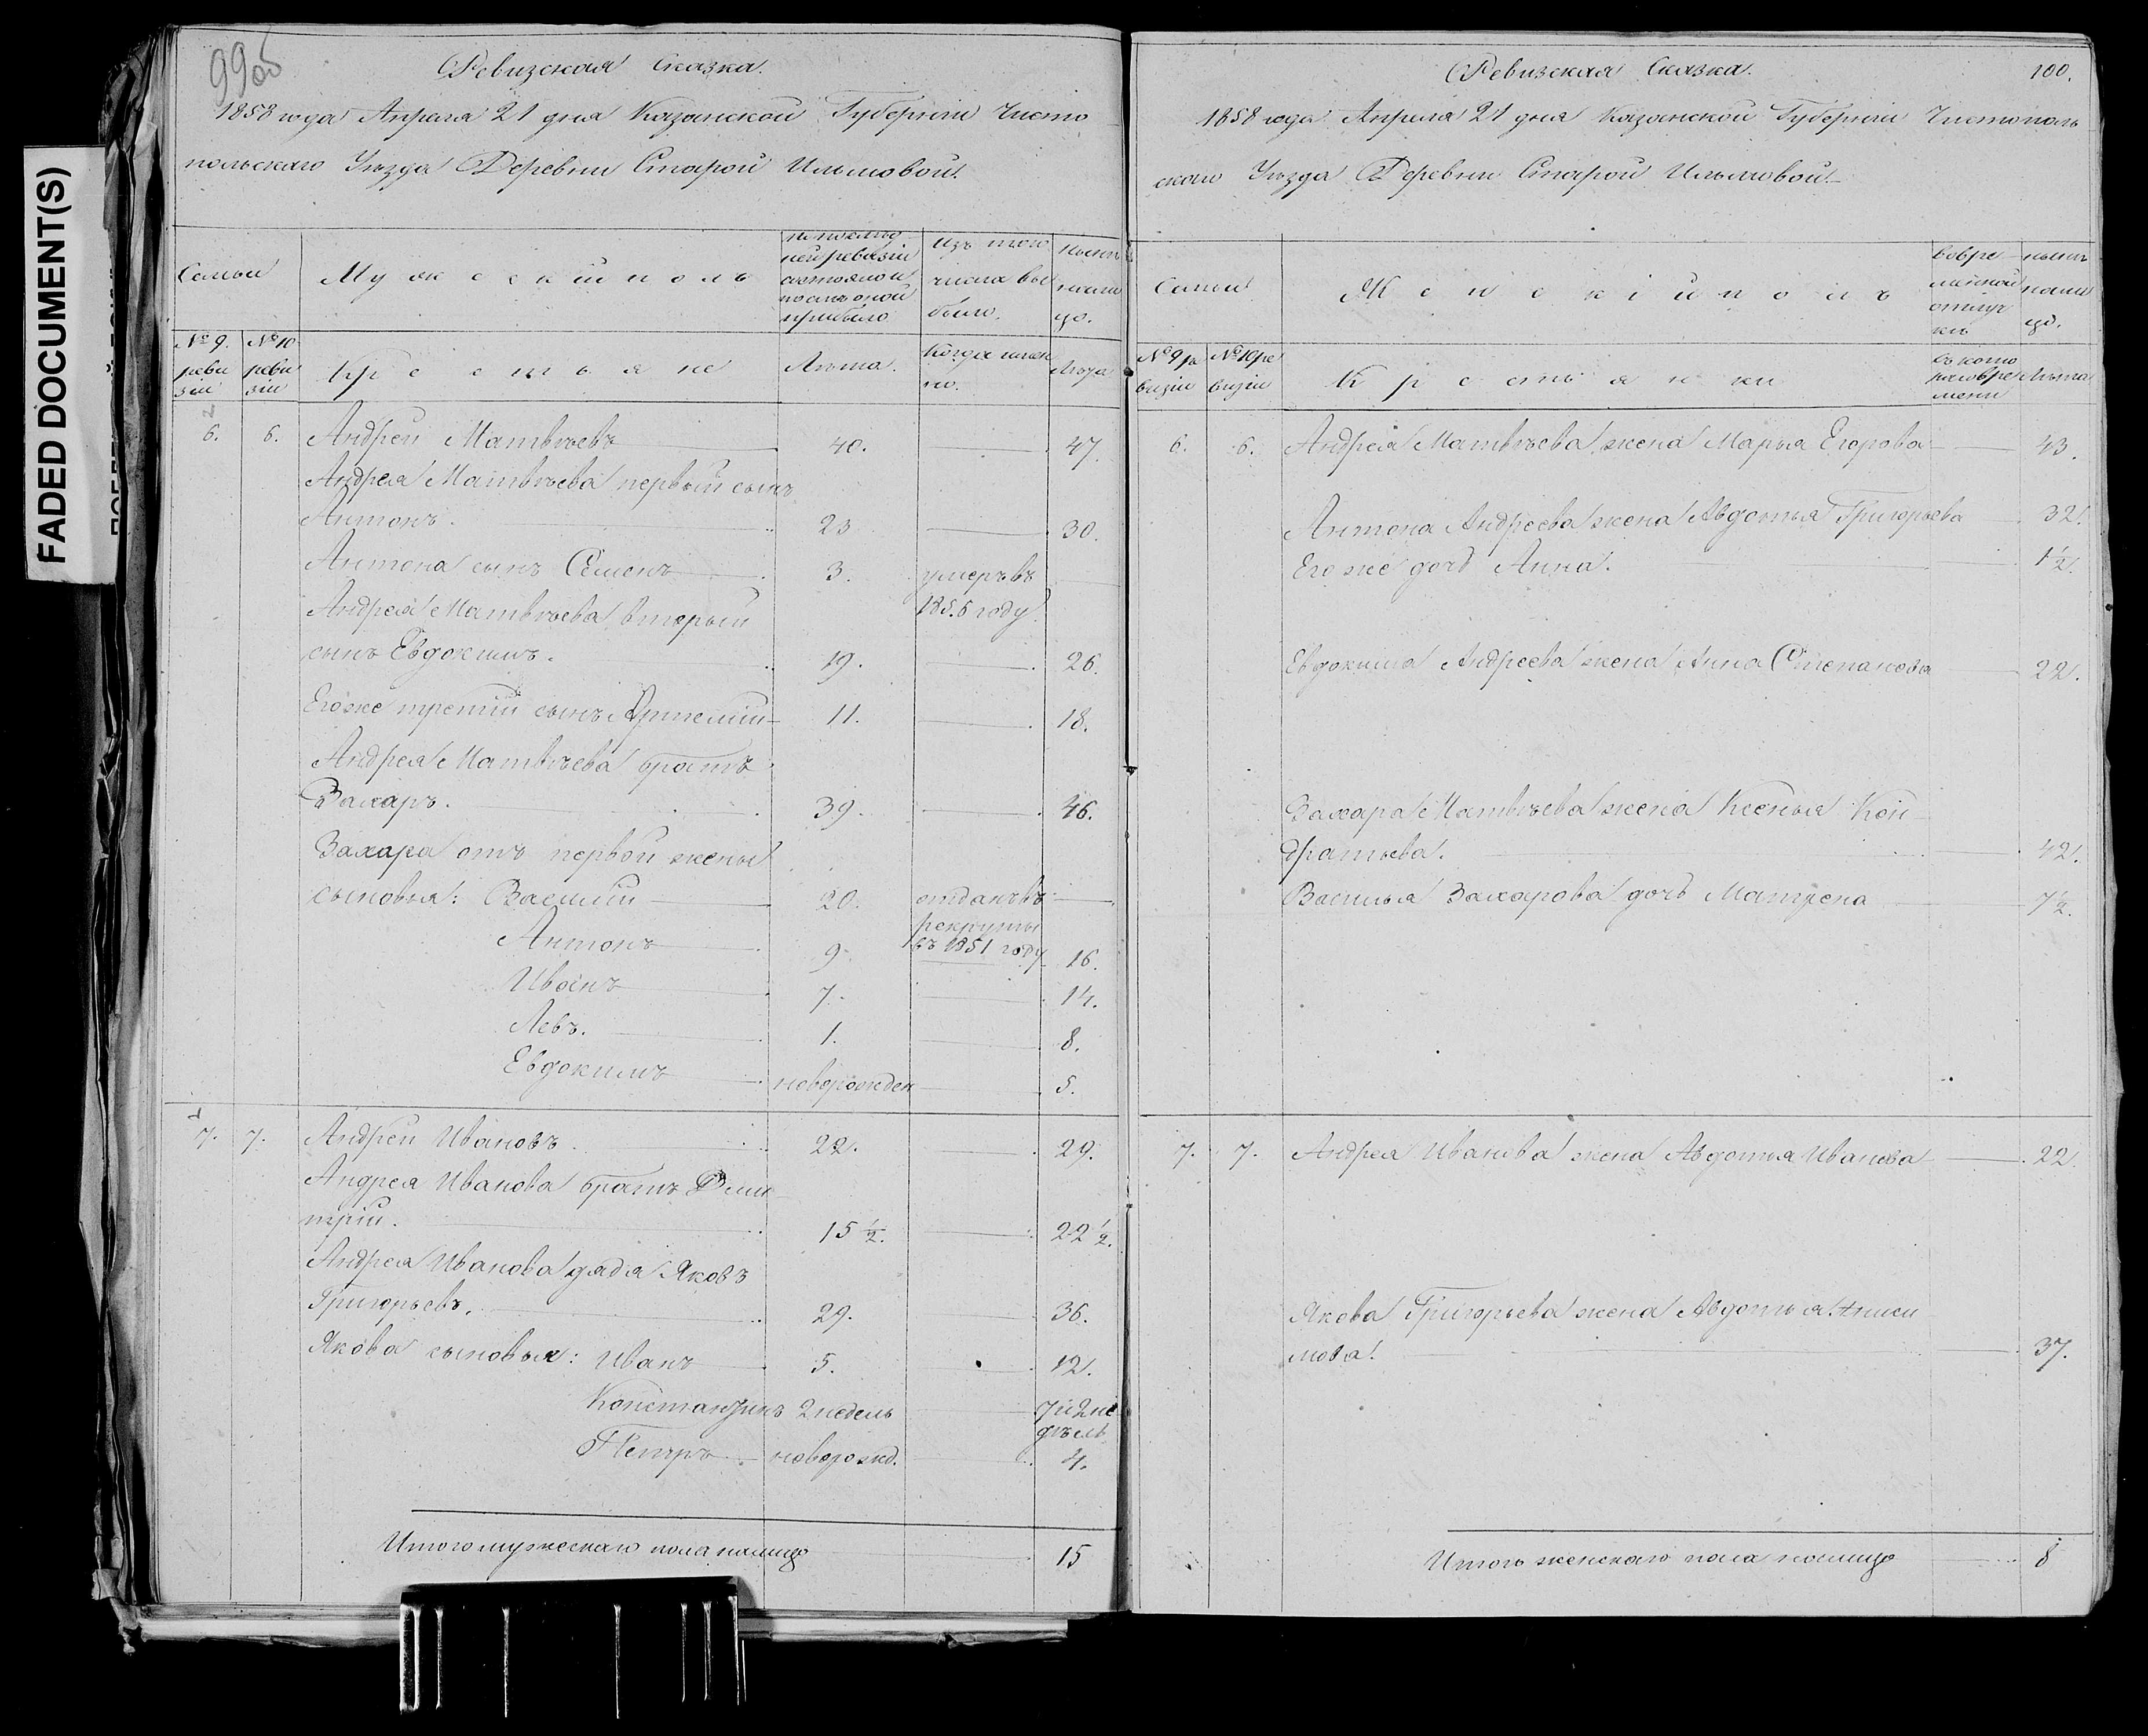 FADED DOCUMENT(S)
99 об
Ревизская Сказка.
1858 года Апреля 21 дня Казанской Губернiи Чисто
польскаго Уѣзда Деревни Старой Ильмовой.
Семьи
Мужескiй полъ
по послѣд
ней ревизiи
состояло и
послѣ оной
прибыло
Изъ того
числа вы
было.
Нынѣ
на ли
цо.
№ 9.
реви
зiи
№ 10
реви
зiи
Крестьяне
Лѣта.
Когда имен
но.
Лѣта
6. 6. Андрей Матвѣевъ 40. 47.
Андрея Матвѣева первый сынъ
Антонъ. 23 30.
Антона сынъ Семенъ 3. умеръ въ
1856 году
Андрея Матвѣева вторый
сынъ Евдокимъ. 19. 26.
Его же третiй сынъ Артемiй 11. 18.
Андрея Матвѣева братъ
Захаръ. 39. 46.
Захара отъ первой жены
сыновья: Василiй 20. отданъ въ
рекруты
въ 1851 году
Антонъ 9. 16.
Иванъ 7. 14.
Левъ. 1. 8.
Евдокимъ новорожден 5.
7. 7. Андрей Ивановъ. 22. 29.
Андрея Иванова братъ Дми
трiй. 15 1/2. 22 1/2.
Андрея Иванова дядя Яковъ
Григорьевъ. 29. 36.
Якова сыновья: Иванъ 5. 12.
Константинъ 2 недель 7 и 2 не
дѣль
Петръ новорожд. 4.
Итого мужескаго пола налицо 15
Ревизская Сказка. 100.
1858 года Апреля 21 дня Казанской Губернiи Чистополь
скаго Уѣзда Деревни Старой Ильмовой.
Семьи
Женскiй полъ
во вре
менной
отлуч
кѣ
нынѣ
нали
цо.
№ 9 ре
визiи
№ 10 ре
визiи
Крестьянки
съ кото
раго вре
мени
Лѣта
6. 6. Андрея Матвѣева жена Марья Егорова 43.
Антона Андреева жена Авдотья Григорьева 32.
Его же дочь Анна. 1 1/2.
Евдокима Андреева жена Анна Степанова 22.
Захара Матвѣева жена Ксенья Кон
дратьева. 42.
Василья Захарова дочь Матрена 7 1/2.
7. 7. Андрея Иванова жена Авдотья Иванова 22.
Якова Григорьева жена Авдотья Аниси
мова. 37.
Итого женскаго пола налицо 8